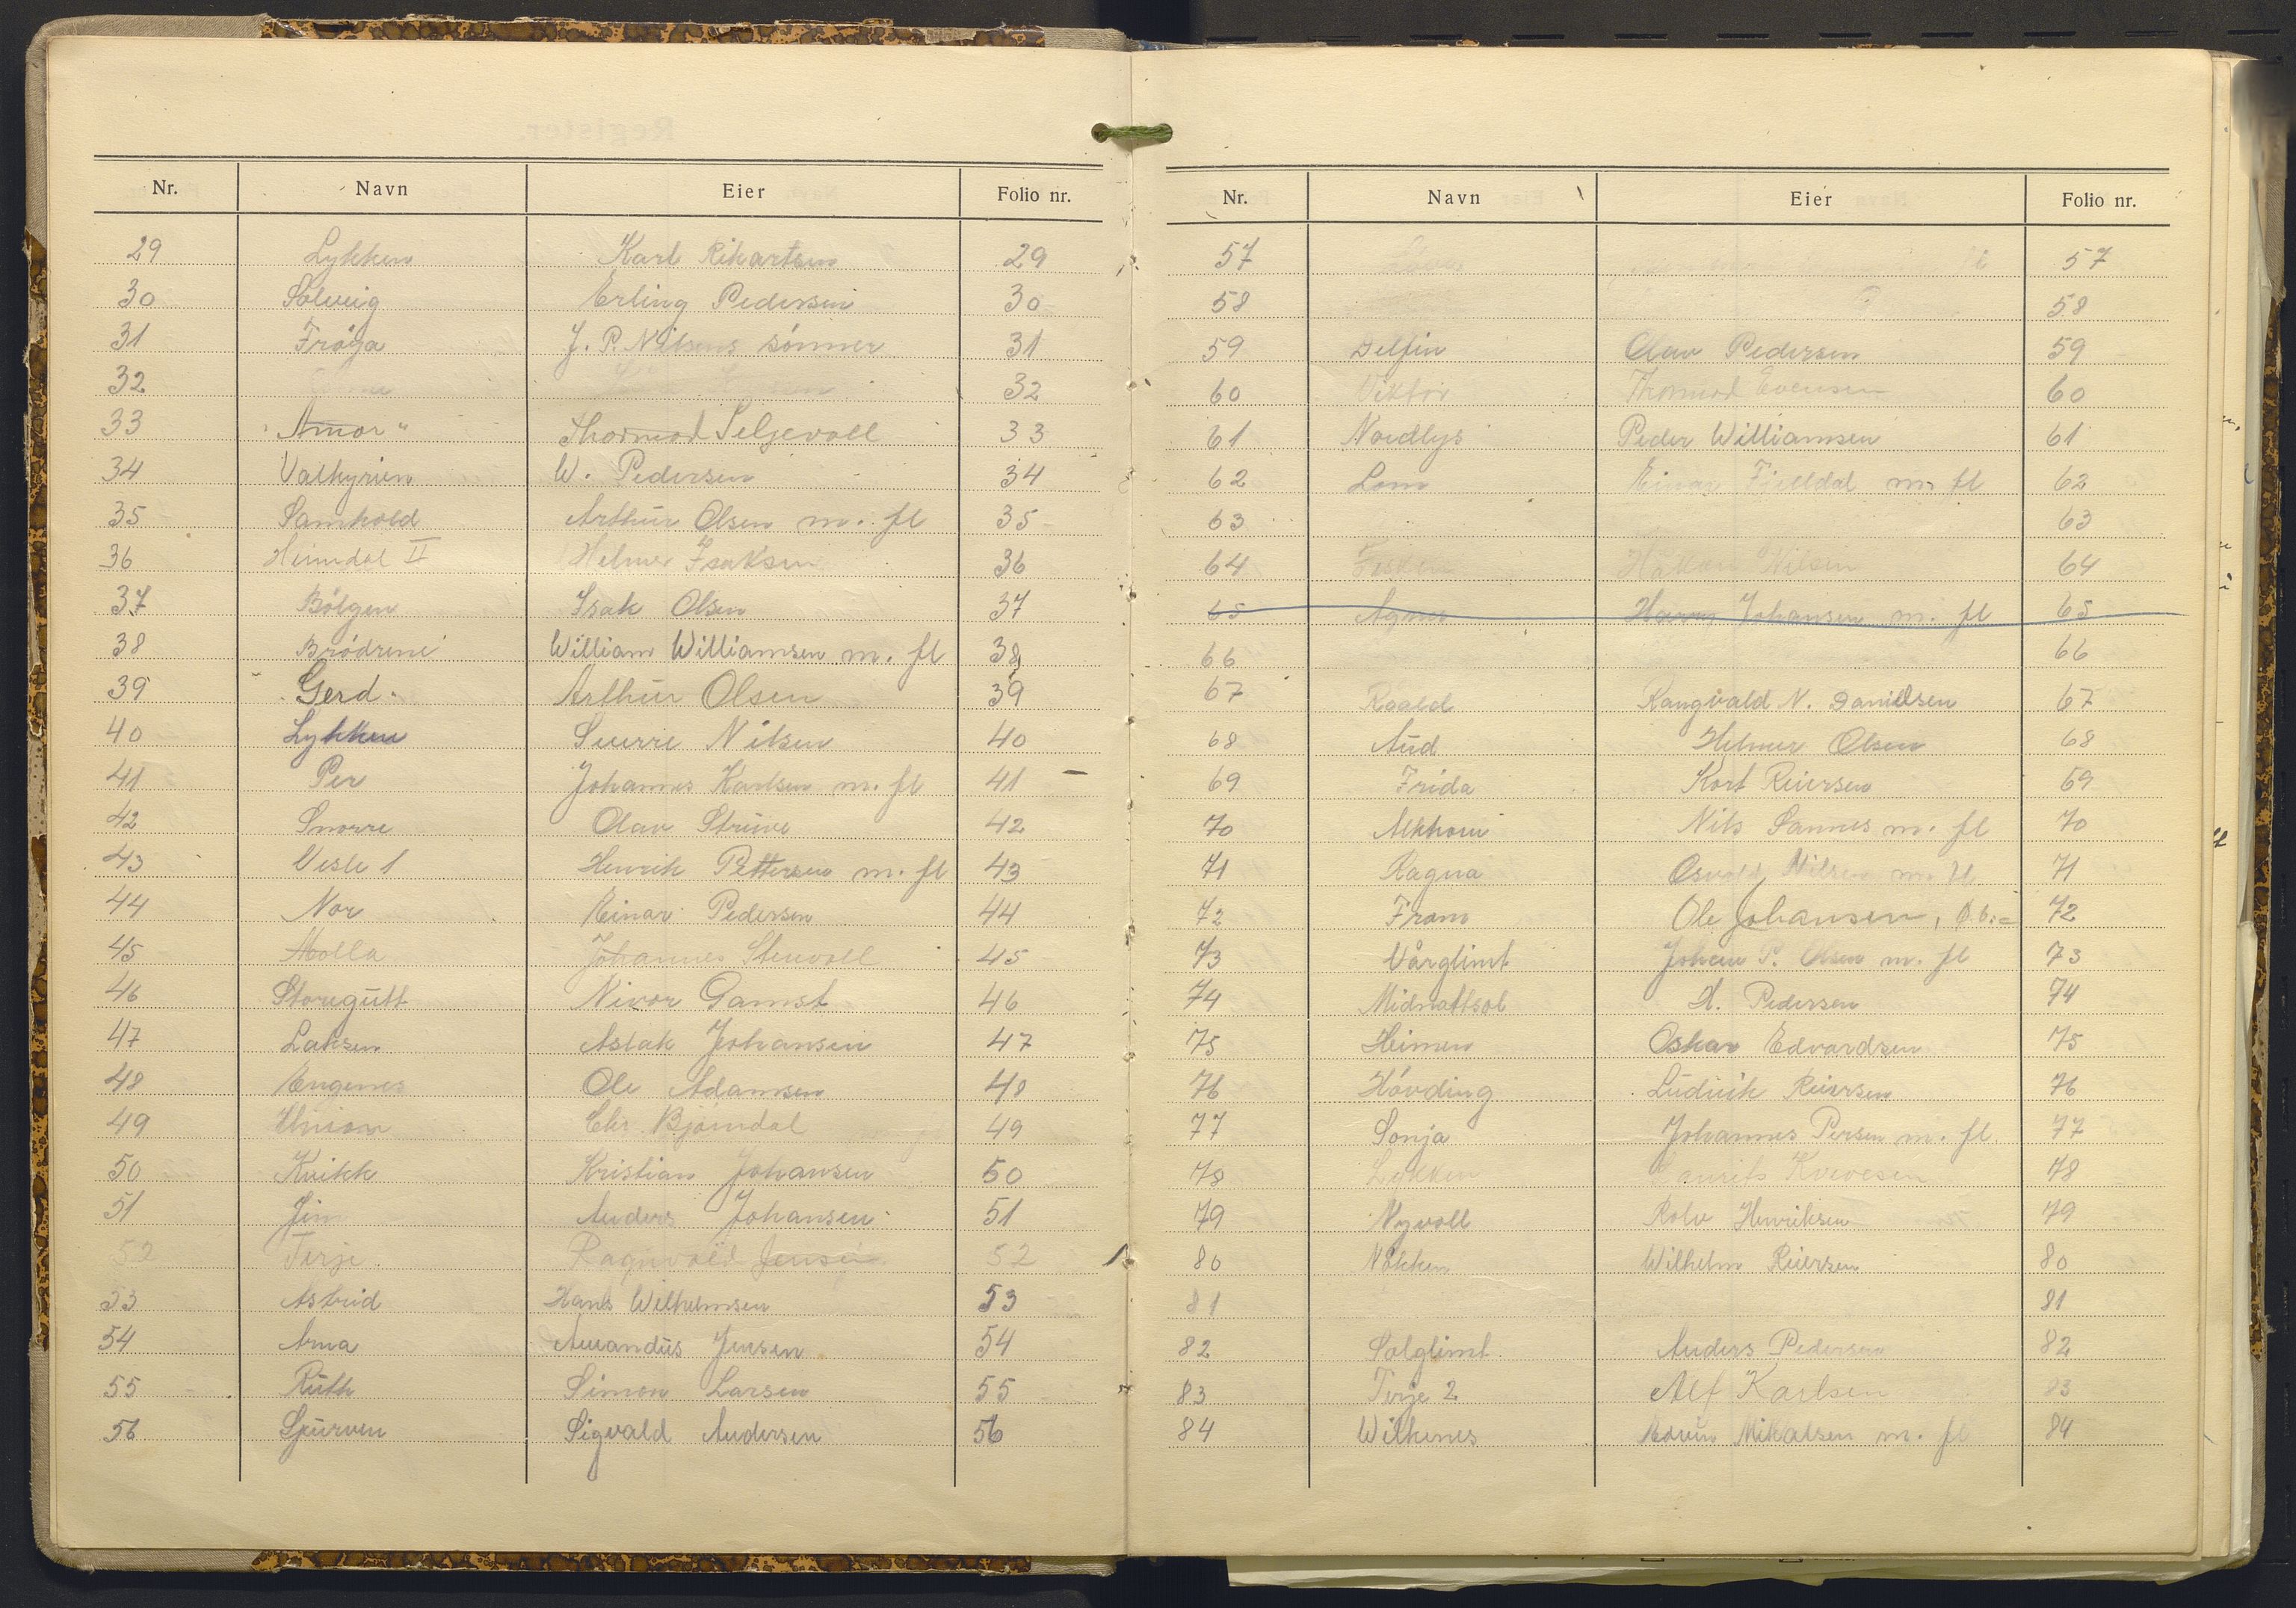 Nr. Navn Eier Folio nr.
29 Lykken Karl Rikartsen 29
30 Solveig Erling Pedersen 30
31 Fröya J. P. Nilsens sönner 31
32 32
33 "Amor" Thormod Seljevoll 33
34 Valkyrien W. Pedersen 34
35 Samhold Arthur Olsen m. fl 35
36 Heimdal II Helmer Isaksen 36
37 Bölgen Isak Olsen 37
38 Brödrene William Williamsen m. fl 38
39 Gerd Arthur Olsen 39
40 Lykken Sverre Nilsen 40
41 Per Johannes Karlsen m. fl 41
42 Snorre Olav Strüve 42
43 Vesle 1 Henrik Pettersen m. fl 43
44 Nor Einar Pedersen 44
45 Molla Johannes Stenvoll 45
46 Storegutt Nivor Gamst 46
47 Laksen Aslak Johansen 47
48 Engenes Ole Adamsen 48
49 Union Chr. Björndal 49
50 Kvikk Kristian Johansen 50
51 Jim Anders Johansen 51
52 Terje Ragnvald Jensen 52
53 Astrid Hans Wilhelmsen 53
54 Arna Amandus Jensen 54
55 Ruth Simon Larsen 55
56 Spurven Sigvald Andersen 56
Nr. Navn Eier Folio nr.
57 57
58 58
59 Delfin Olav Pedersen 59
60 Viktor Thormod Evensen 60
61 Nordlys Peder Williamsen 61
62 Lom Einar Fjelldal m fl 62
63 63
64 Håkon Nilsen 64
65 Agnes Harry Johansen m. fl 65
66 66
67 Roald Rangvald N. Danielsen 67
68 Aud Helmer Olsen 68
69 Frida Kort Reiersen 69
70 Nils Sannes m. fl 70
71 Ragna Osvald Nilsen m. fl 71
72 Fram Ole Johansen, 72
73 Vårglimt Johan P. Olsen m. fl 73
74 Midnattsol H. Pedersen 74
75 Heimen Oskar Edvardsen 75
76 Hövding Ludvik Reiersen 76
77 Sonja Johannes Persen m. fl. 77
78 Lykken Laurits 78
79 Nyvoll Rolv Henriksen 79
80 Nökken Wilhelm Reiersen 80
81 81
82 Solglimt Anders Pedersen 82
83 Terje 2 Alf Karlsen 83
84 Wilhines Edvin Mikalsen m. fl 84